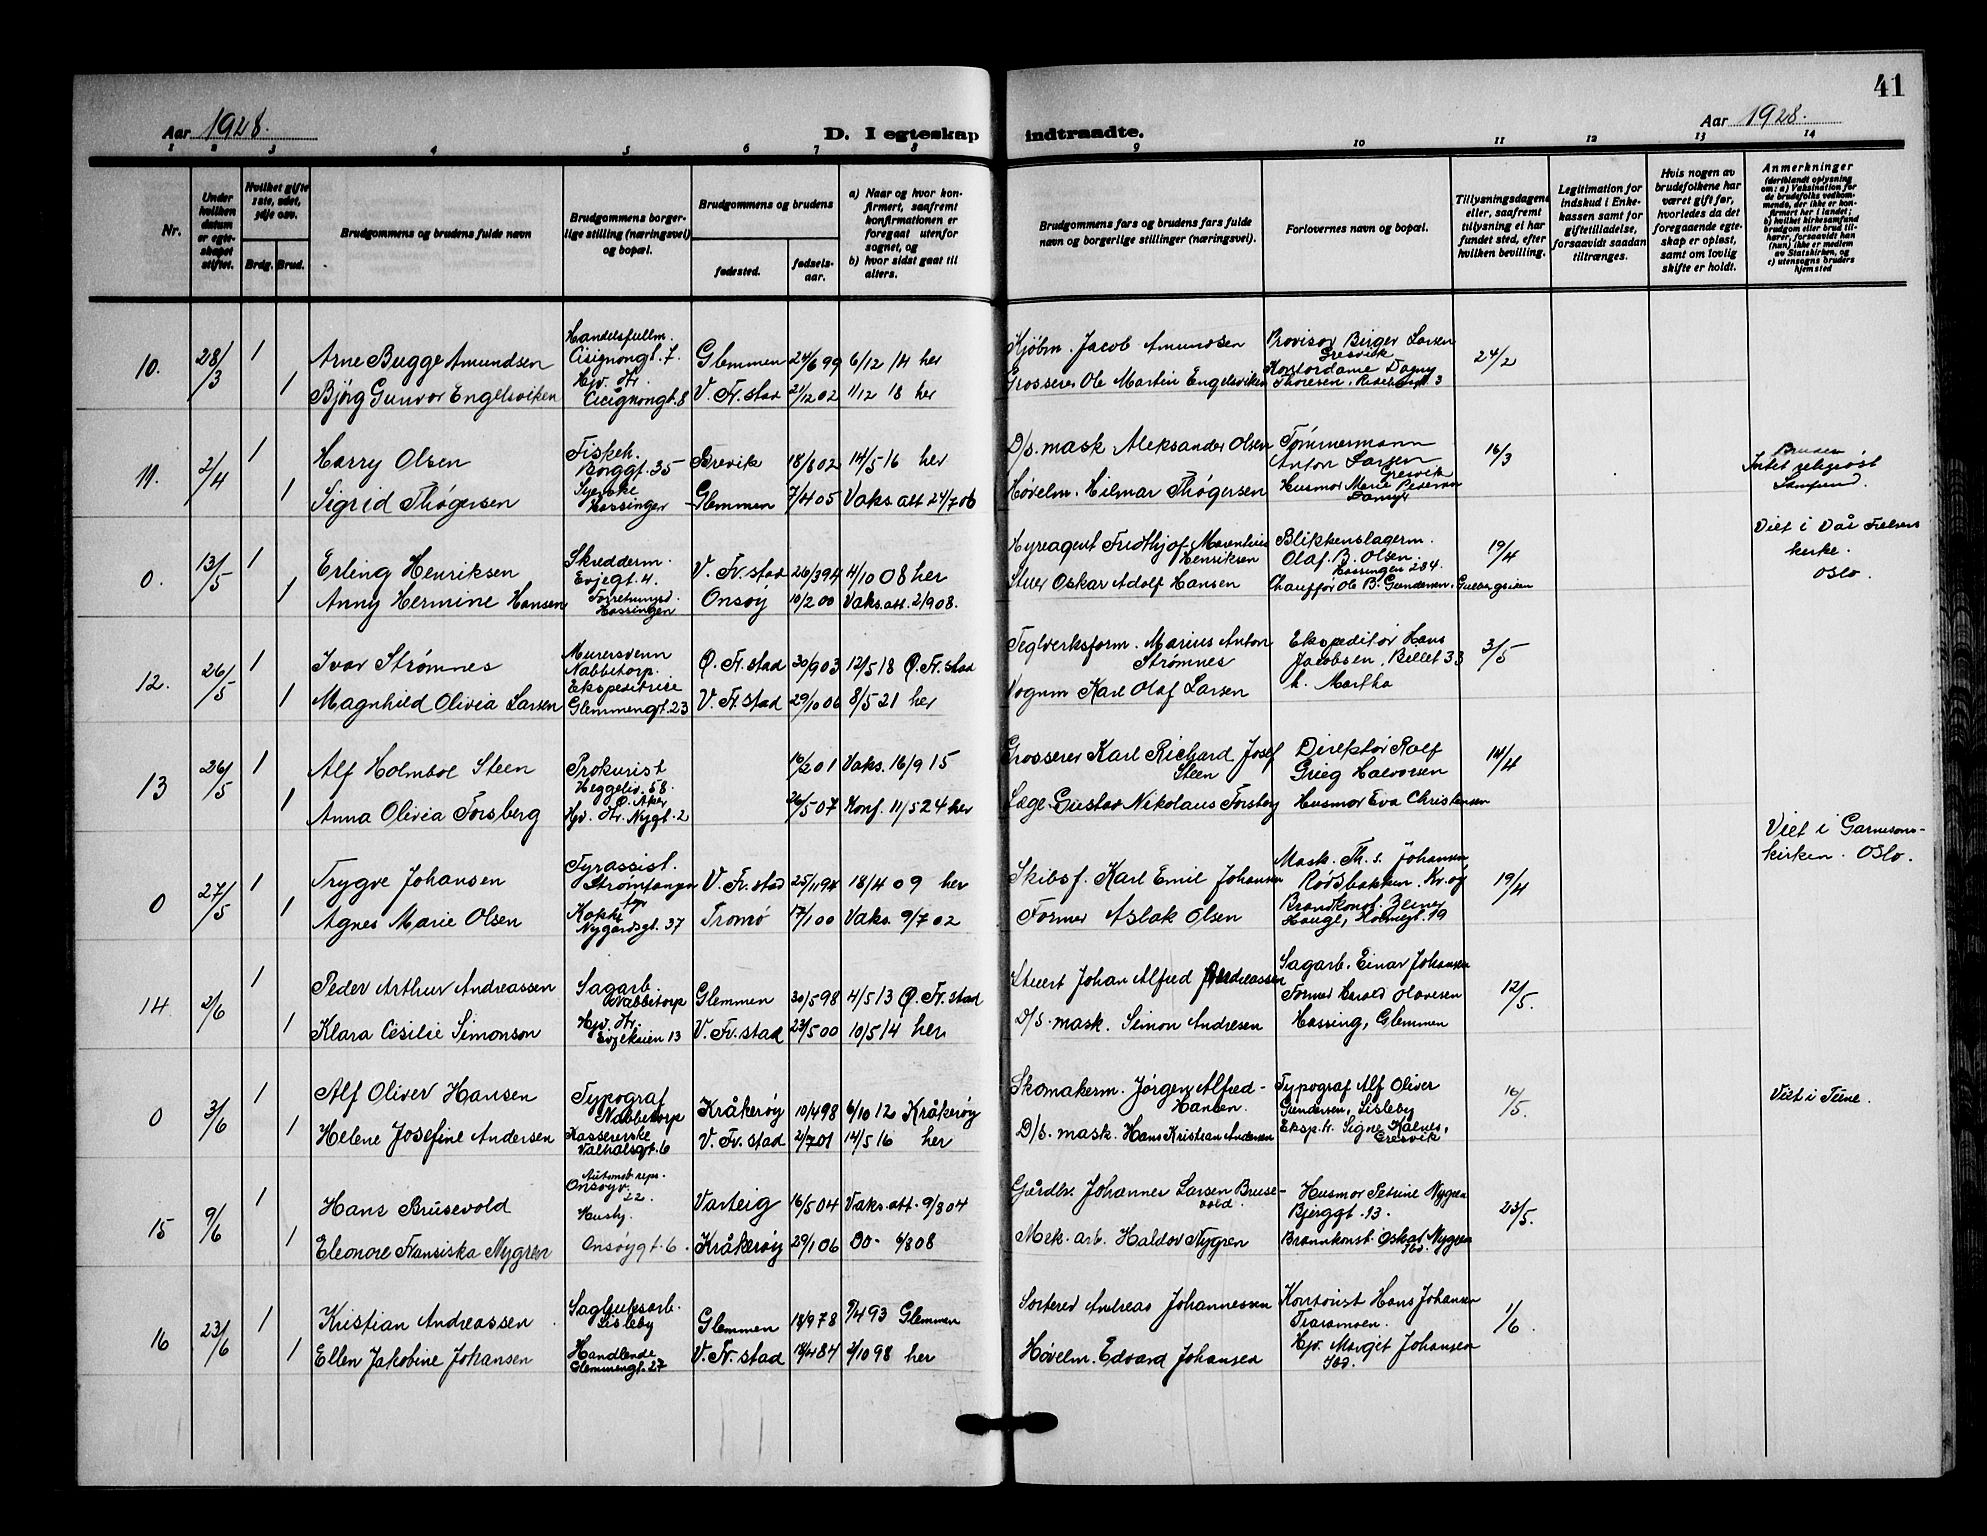 41
Aar 1928.
D. I egteskap indtraadte.
Aar 1928.
1 2 3 4 5 6 7 8 9 10 11 12 13 14
Nr.
Under hvilken datum er egteskapet stiftet.
Hvilket gifte 1ste, 2det, 3dje osv.
Brdg. Brud.
Brudgommens og brudens fulde navn
Brudgommens borgerlige stilling (næringsvei) og bopæl.
Brudgommens og brudens
fødested.
fødselsaar.
a) Naar og hvor konfirmert, saafremt konfirmationen er foregaat utenfor sognet, og
b) hvor sidst gaat til alters.
Brudgommens fars og brudens fars fulde navn og borgerlige stillinger (næringsvei).
Forlovernes navn og bopæl.
Tillysningsdagene eller, saafremt tillysning ei har fundet sted, efter hvilken bevilling.
Legitimation for indskud i Enkekassen samt for giftetilladelse, forsaavidt saadan tiltrænges.
Hvis nogen av brudefolkene har været gift før, hvorledes da det foregaaende egteskap er opløst, samt om lovlig skifte er holdt.
Anmerkninger
(deriblandt oplysning om: a) Vaksination for de brudefolks vedkommende, der ikke er konfirmert her i landet; b) hvilket kirkesamfund brudgom eller brud tilhører, forsaavidt han (hun) ikke er medlem av Statskirken, og c) utensogns bruders hjemsted
10. 28/3 1 Arne Bugge Amundsen Handelsfullm. Cisignongt. 7. Glemmen 24/6 99 6/12 14 her Kjøbm. Jacob Amundsen Provisor Birger Larsen Gresvik 24/2
1 Bjørg Gunvor Engelsviken Hjv. Fr. Cicignongt. 8 V. Fr.stad 21/12 02 1/12 18 her Grosserer Ole Martin Engelsviken Kontordame Dagny Thoresen.
11. 2/4 1 Harry Olsen Fiskeh. Borggt. 35 Brevik 18/8 02 14/5 16 her D/s. mask Aleksander Olsen Tømmermann Anton Larsen Gresvik 16/3
1 Sigrid Thøgersen Syerske Hassingen Glemmen 7/4 05 Vaks. att 24/7 06 Høvelm. Hilmar Thøgersen Husmor Marie Pedersen
Bruden Intet religiøst Samfund.
0. 13/5 1 Erling Henriksen Skredderm. Evjegt. 4. V. Fr.stad 26/3 94 4/10 08 her Hyreagent Fridthjof Marentius Henriksen Blikkenslagerm. Olaf. B. Olsen. Hassingen 284. 19/4
1 Anny Hermine Hansen Forretningsd. Hassingen Onsøy 10/2 00 Vaks. att. 2/9 08. Stuer Oskar Adolf Hansen Chauffør Ole B. Gundersen,
Viet i Vår Frelsers kirke. Oslo.
12. 26/5 1 Ivar Strømnes Murersvenn Nabbetorp. Ø. Fr.stad 30/9 03 12/5 18 Ø. Fr.stad Teglverksform. Marius Anton Strømnes Ekspeditør Hans Jacobsen, 3/5
1 Magnhild Olivia Larsen Ekspeditrise Glemmengt. 23 V. Fr.stad 29/10 06 8/5 21 her Vognm Karl Olaf Larsen h. Martha
13 26/5 1 Alf Holmboe Steen Prokurist Heggeliv. 58. Ø. Aker 16/2 01 Vaks. 16/9 15 Grosserer Karl Richard Josef Steen Direktør Rolf Grieg Halvorsen 14/4
1 Anna Olivia Forsberg Hjv. Fr. Nygt. 2 26/5 07 Konf. 11/5 24 her Læge Gustav Nikolaus Forsberg Husmor Eva Christensen
0 27/5 1 Trygve Johansen Fyrassist. Strømtangen fyr V. Fr.stad 25/11 94 18/4 09 her Skibsf. Karl Emil Johansen Mask. Th. s. Johansen Rødsbakken. Kr.øy 19/4
1 Agnes Marie Olsen Kokke Nygårdsgt. 37 Tromø 17/1 00 Vaks. 9/7 02 Former Aslak Olsen Brandkonst. Hauge, Holmegt. 19
Viet i Garnisonskirken. Oslo.
14. 2/6 1 Peder Arthur Andreassen Sagarb. Nabbetorp Glemmen 30/5 98 4/5 13 Ø. Fr.stad Stuert Johan Alfred Andreassen Sagarb. Einar Johansen 12/5.
1 Klara Cesilie Simonson Hjv. Fr. Evjekleien 13 V. Fr.stad 23/5 00 10/5 14 her D/S. mask. Simon Andresen Former Harald Olavesen Hassing, Glemmen
0 3/6 1 Alf Oliver Hansen Typograf Nabbetorp Kråkerøy 10/4 98 6/10 12 Kråkerøy Skomakerm. Jørgen Alfred Hansen. Typograf Alf Oliver Gundersen, Lisleby 10/5.
1 Helene Josefine Andersen Kassererske Valhalsgt. 6 V. Fr.stad 2/7 01 14/5 16 her D/s. mask. Hans Kristian Andersen Eksp. fr. Signe Kalnes, Gresvik
Viet i Tune.
15 9/6 1 Hans Brusevold Automat repr. Onsøyv. 22. Varteig 16/5 04 Vaks. att. 9/8 04 Gårdbr. Johannes Larsen Brusevold. Husmor Petrine Nygren Bjerggt. 13. 23/5.
1 Eleonore Fransiska Nygren Husbj. Onsøygt. 6. Kråkerøy 29/1 06 Do- 6/8 08 Mek. arb. Haldor Nygren Brannkonst. Oskar Nygren Ibd.
16 23/6 1 Kristian Andreassen Sagbruksarb. Lisleby Glemmen 18/9 78 9/4 93 Glemmen Sorterer Andreas Johannessen Kontorist Hans Johansen Traramoen. 1/6.
1 Ellen Jakobine Johansen Handlende Glemmengt. 27 V. Fr.stad 18/4 84 2/10 98 her Høvelm. Edvard Johansen Hjv. Margit Johansen Ibd.